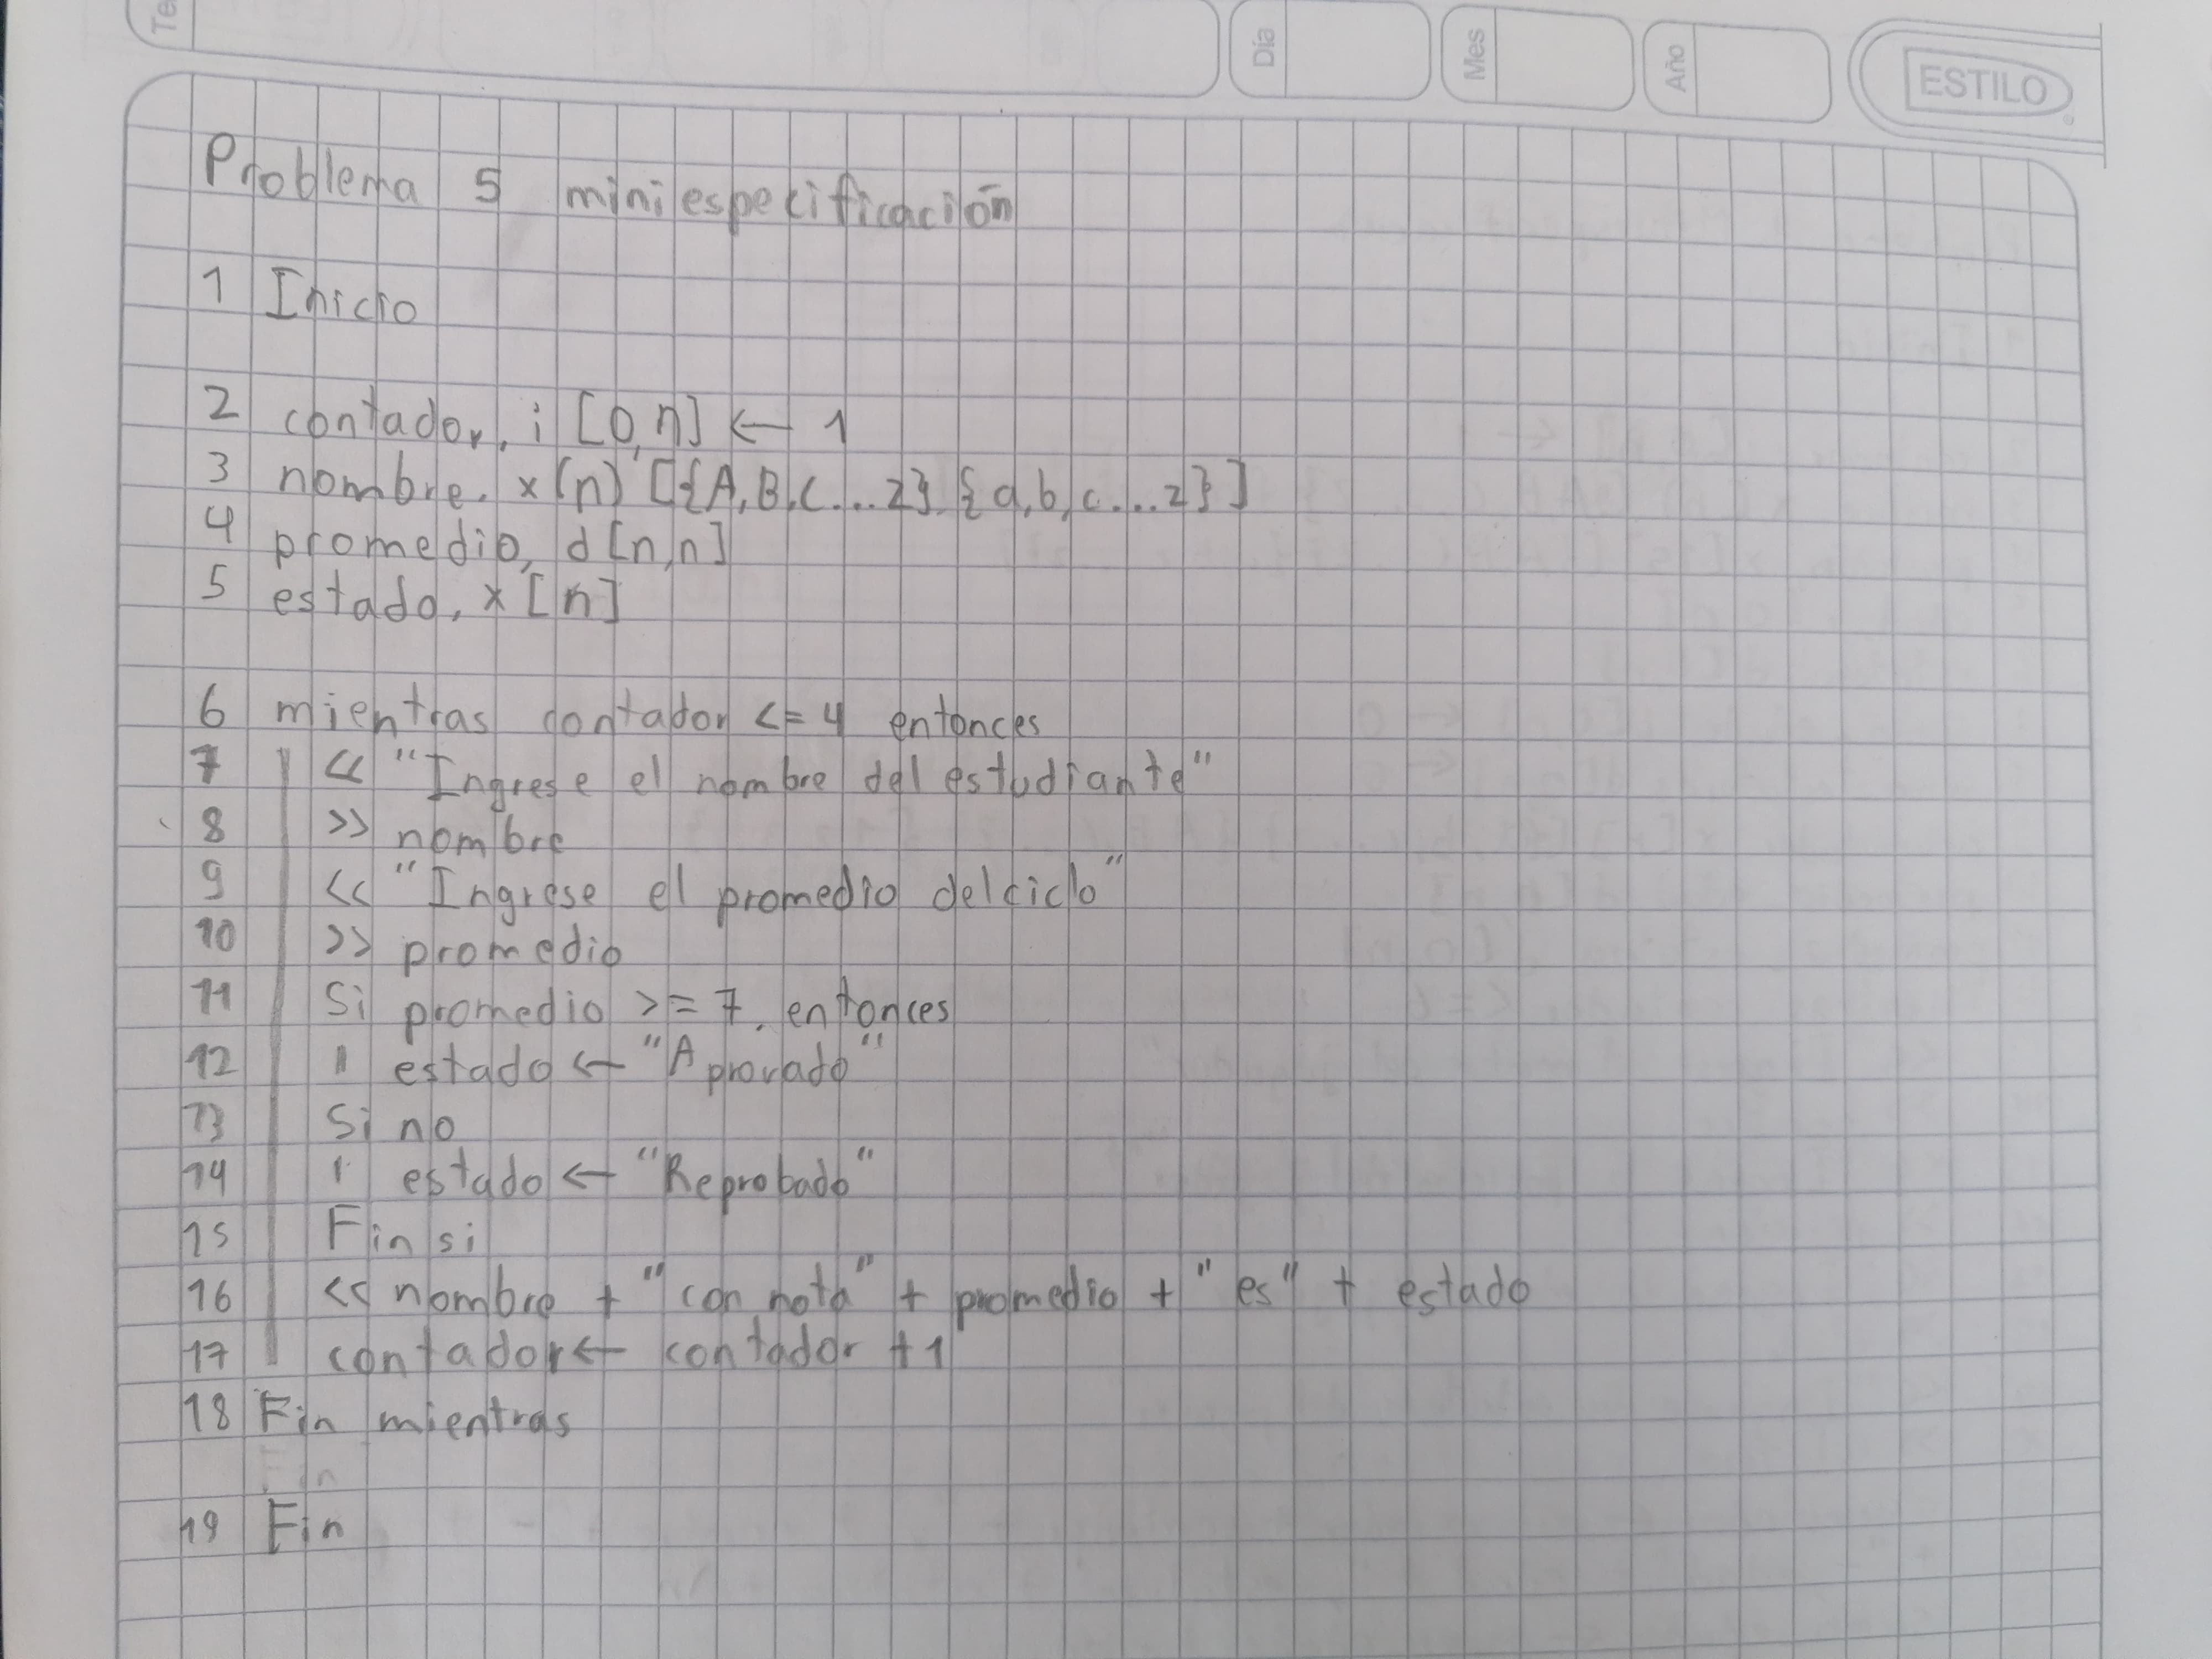 Día Mes Año ESTILO
Problema 5 miniespecificación
1 Inicio
2 contador, i [0,n] ← 1
3 nombre, x(n) [{A,B,C...z},{a,b,c...z}]
4 promedio, d[n,n]
5 estado, x[n]
6 mientras contador <= 4 entonces
7 << "Ingrese el nombre del estudiante"
8 >> nombre
9 << "Ingrese el promedio del ciclo"
10 >> promedio
11 Si promedio >= 7. entonces
12 estado ← "Aprovado"
13 Si no
14 estado ← "Reprobado"
15 Fin si
16 << nombre + "con nota" + promedio + "es" + estado
17 contador ← contador +1
18 Fin mientras
19 Fin